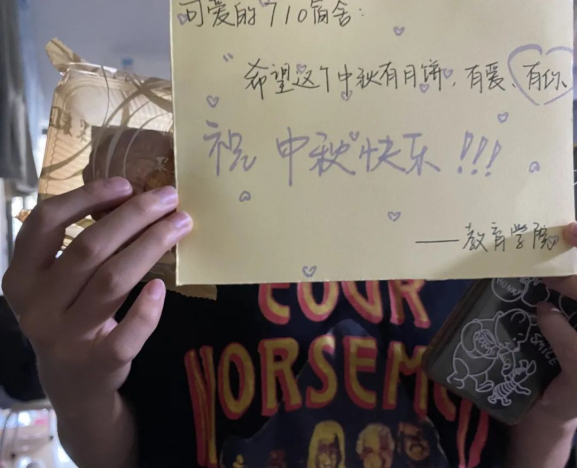 可爱的710宿舍:
"希望这个中秋有月饼、有爱、有你
祝 中秋快乐!!!
——教育学院
FOUR
HORSEMEN
SMILE